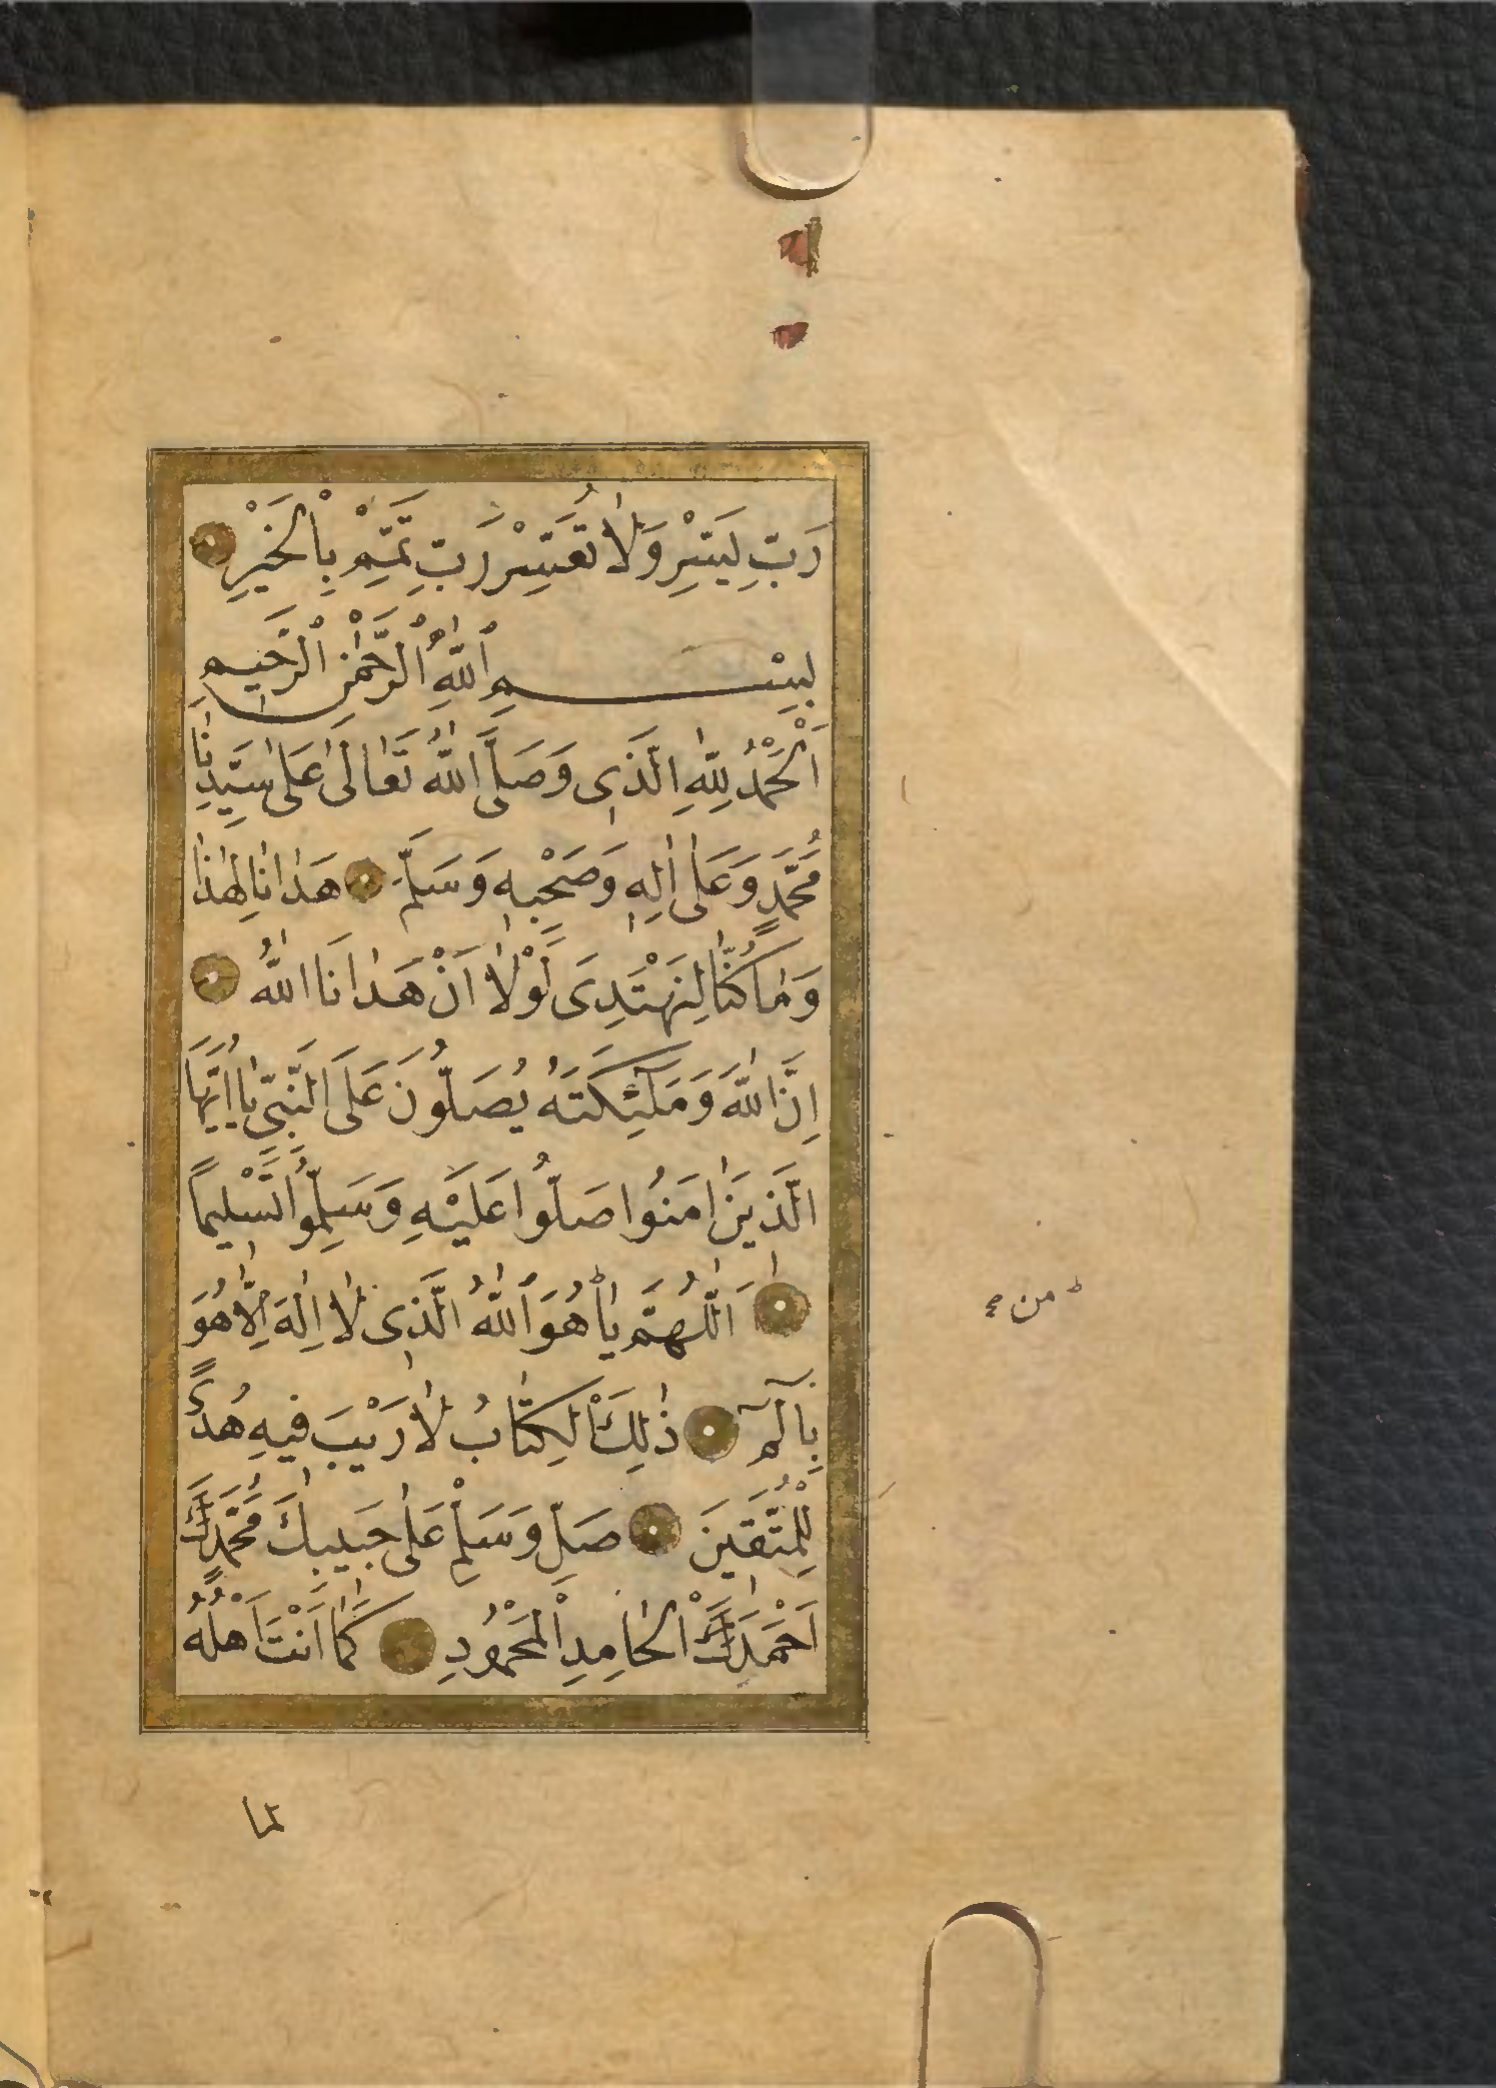 رَبِّ يَسِّرْ وَلَا تُعَسِّرْ رَبِّ تَمِّمْ بِالْخَيْرِ
بِسْمِ اللّٰهِ الرَّحْمٰنِ الرَّحِيمِ
اَلْحَمْدُ لِلّٰهِ الَّذِى وَصَلَّى اللّٰهُ تَعَالٰى عَلٰى سَيِّدِنَا
مُحَمَّدٍ وَعَلٰى اٰلِهِ وَصَحْبِهِ وَسَلَّمَ هَدٰانَا لِهٰذَا
وَمَا كُنَّا لِنَهْتَدِىَ لَوْلَا اَنْ هَدٰانَا اللّٰهُ
اِنَّ اللّٰهَ وَمَلٰٓئِكَتَهُ يُصَلُّونَ عَلَى النَّبِىِّ يَا اَيُّهَا
الَّذِينَ اٰمَنُوا صَلُّوا عَلَيْهِ وَسَلِّمُوا تَسْلِيمًا
اَللّٰهُمَّ يَا هُوَ اللّٰهُ الَّذِى لَا اِلٰهَ اِلَّا هُوَ
بِالٓمٓ ذٰلِكَ الْكِتَابُ لَا رَيْبَ فِيهِ هُدًى
لِلْمُتَّقِينَ صَلِّ وَسَلِّمْ عَلٰى حَبِيبِكَ مُحَمَّدِكَ
اَحْمَدِكَ الْحَامِدِ الْمَحْمُودِ كَمَا اَنْتَ اَهْلُهُ
من
لما